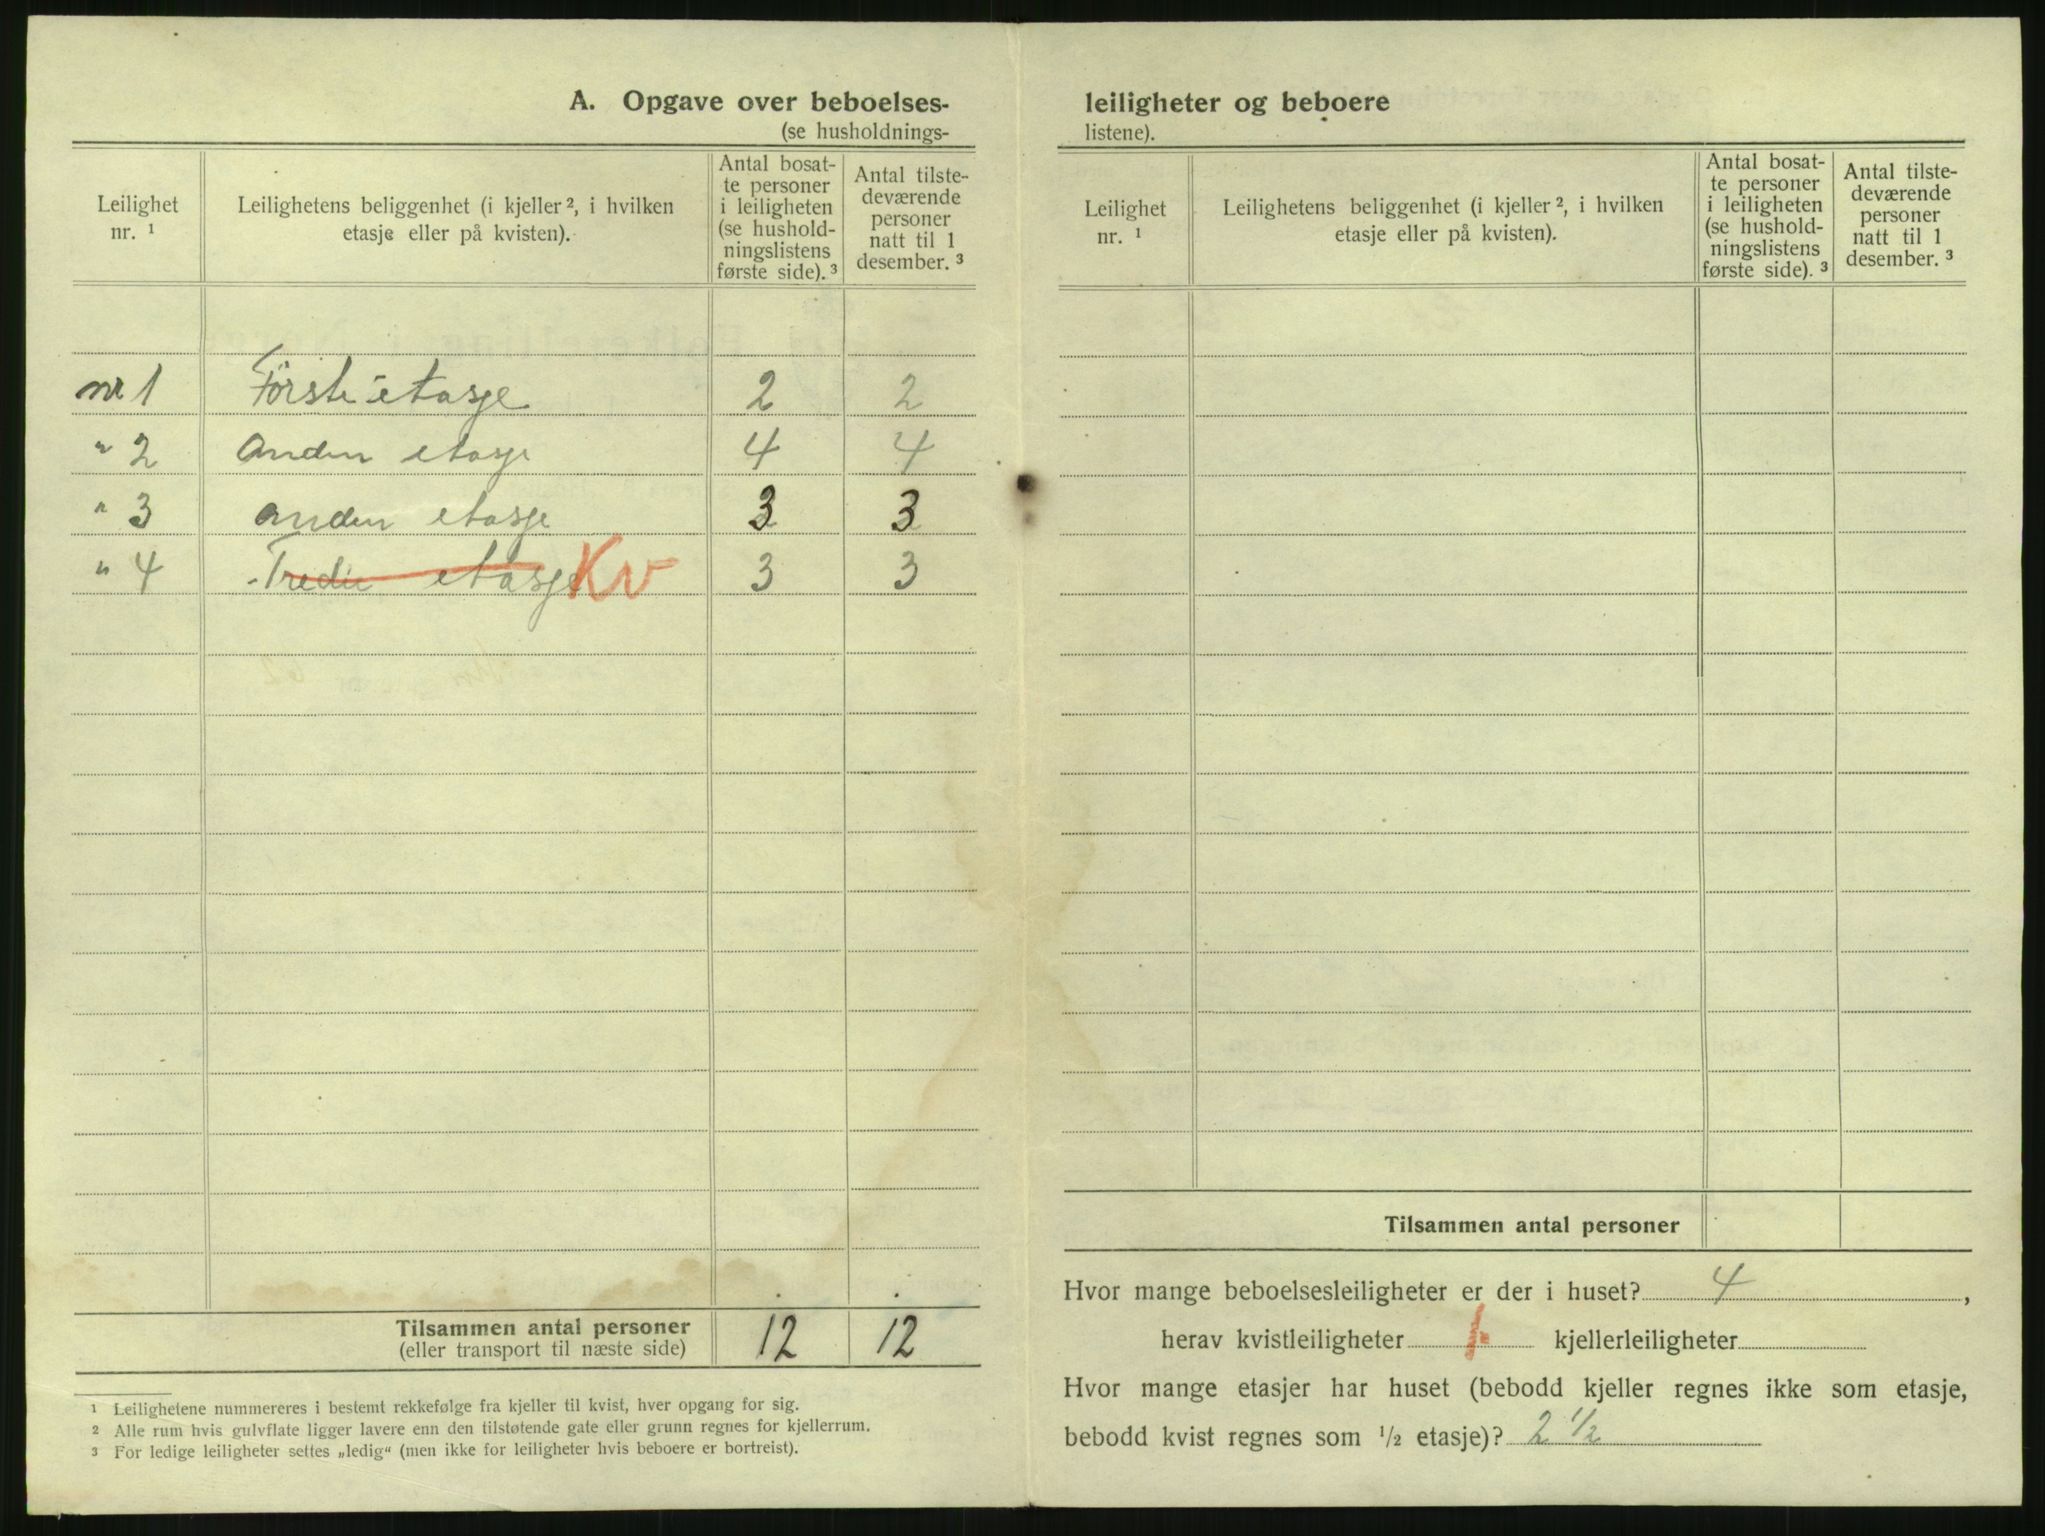 A. Opgave over beboelses-
(se husholdnings-
Leilighet nr. ¹
Leilighetens beliggenhet (i kjeller ², i hvilken etasje eller på kvisten).
Antal bosatte personer i leiligheten (se husholdningslistens første side). ³
Antal tilstedeværende personer natt til 1 desember. ³
nr 1 Förste etasje 2 2
" 2 Anden etasje 4 4
" 3 Anden etasje 3 3
" 4 Tredie etasje Kv 3 3
Tilsammen antal personer 12 12
(eller transport til næste side)
¹ Leilighetene nummereres i bestemt rekkefølge fra kjeller til kvist, hver opgang for sig.
² Alle rum hvis gulvflate ligger lavere enn den tilstøtende gate eller grunn regnes for kjellerrum.
³ For ledige leiligheter settes „ledig“ (men ikke for leiligheter hvis beboere er bortreist).
leiligheter og beboere
listene).
Leilighet nr. ¹
Leilighetens beliggenhet (i kjeller ², i hvilken etasje eller på kvisten).
Antal bosatte personer i leiligheten (se husholdningslistens første side). ³
Antal tilstedeværende personer natt til 1 desember. ³
Tilsammen antal personer
Hvor mange beboelsesleiligheter er der i huset? 4 ,
herav kvistleiligheter 1 kjellerleiligheter
Hvor mange etasjer har huset (bebodd kjeller regnes ikke som etasje,
bebodd kvist regnes som ½ etasje)? 2 ½